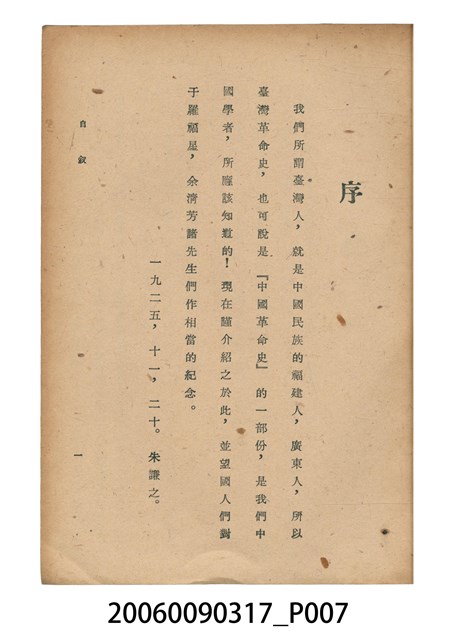 序
我們所謂臺灣人，就是中國民族的福建人，廣東人，所以
臺灣革命史，也可說是『中國革命史』的一部份，是我們中
國學者，所應該知道的！現在謹介紹之於此，並望國人們對
于羅福星，余清芳諸先生們作相當的紀念。
一九二五，十一，二十。朱謙之。
自敘
一
20060090317_P007